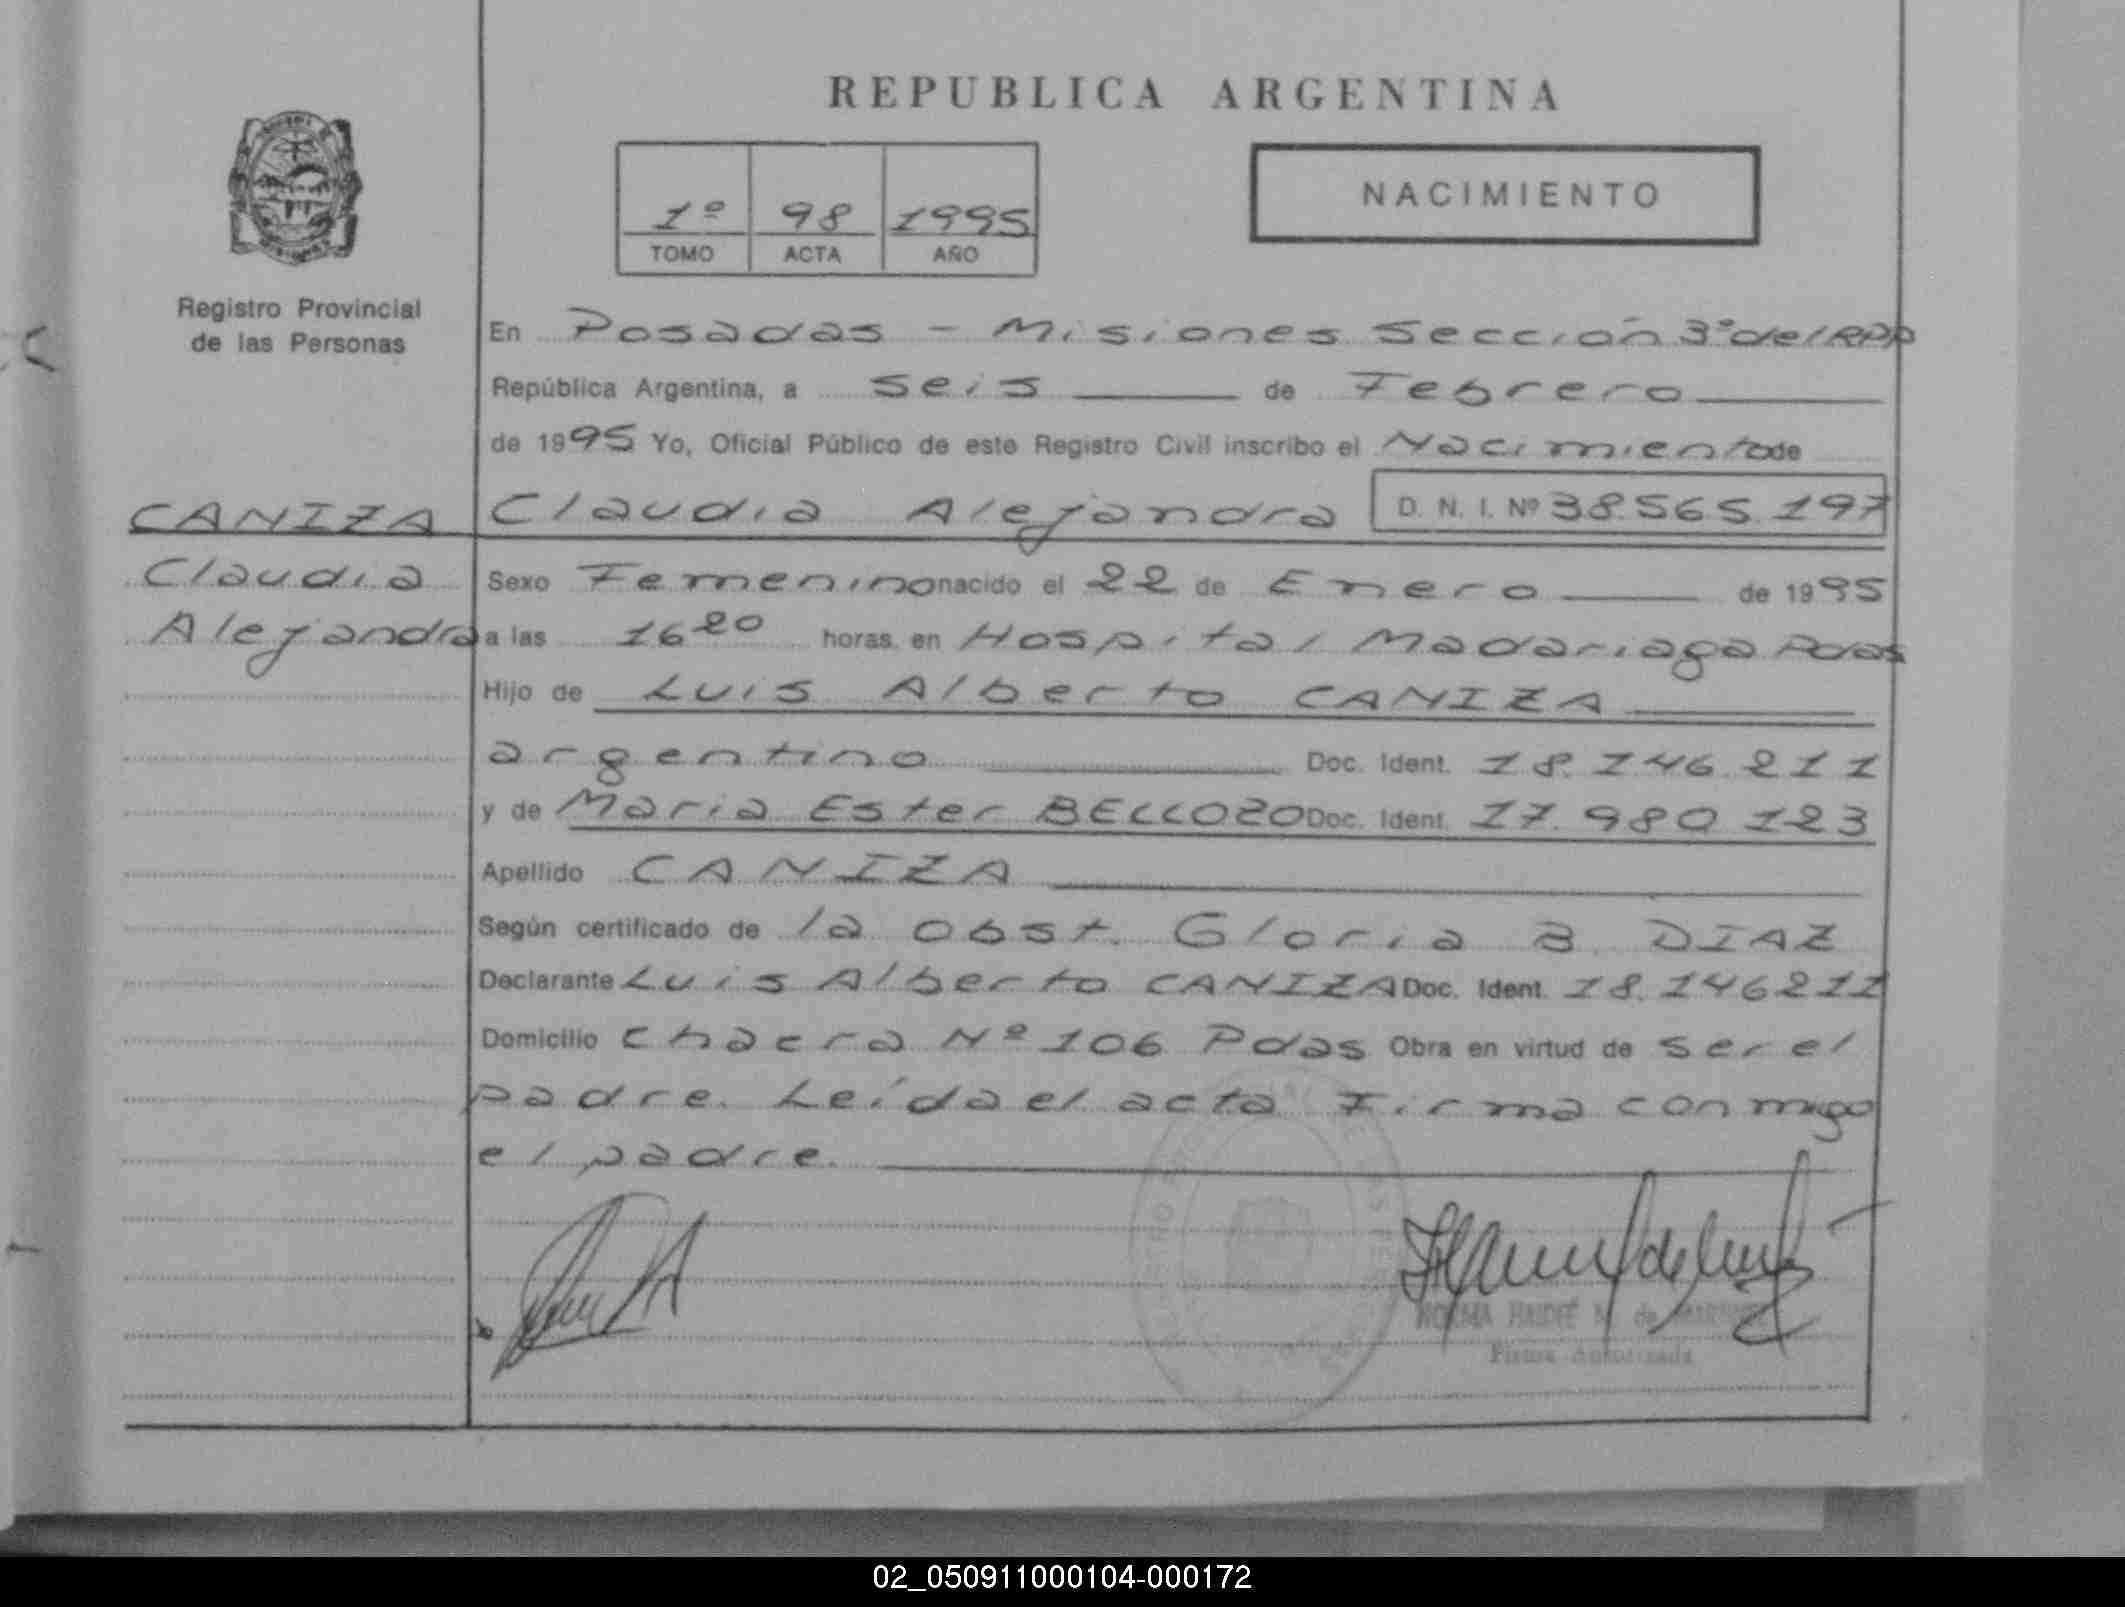 REPUBLICA ARGENTINA
1º 98 1995
TOMO ACTA AÑO
NACIMIENTO
Registro Provincial
de las Personas
En Posadas - Misiones Sección 3º del RPP
República Argentina, a seis de Febrero
de 1995 Yo, Oficial Público de este Registro Civil inscribo el Nacimiento de
CANIZA Claudia Alejandra D. N. I. Nº 38.565.197
Claudia
Alejandra
Sexo Femenino nacido el 22 de Enero de 1995
a las 16 20 horas, en Hospital Madariaga Pdas
Hijo de Luis Alberto CANIZA
argentino Doc. Ident. 18.146.211
y de Maria Ester BELLOZO Doc. Ident. 17.980.123
Apellido CANIZA
Según certificado de la obst. Gloria B. DIAZ
Declarante Luis Alberto CANIZA Doc. Ident. 18.146211
Domicilio Chacra Nº 106 Pdas Obra en virtud de ser el
padre. Leída el acta Firma conmigo
el padre.
NORMA HAIDEÉ M. de
Firma Autorizada
02_050911000104-000172